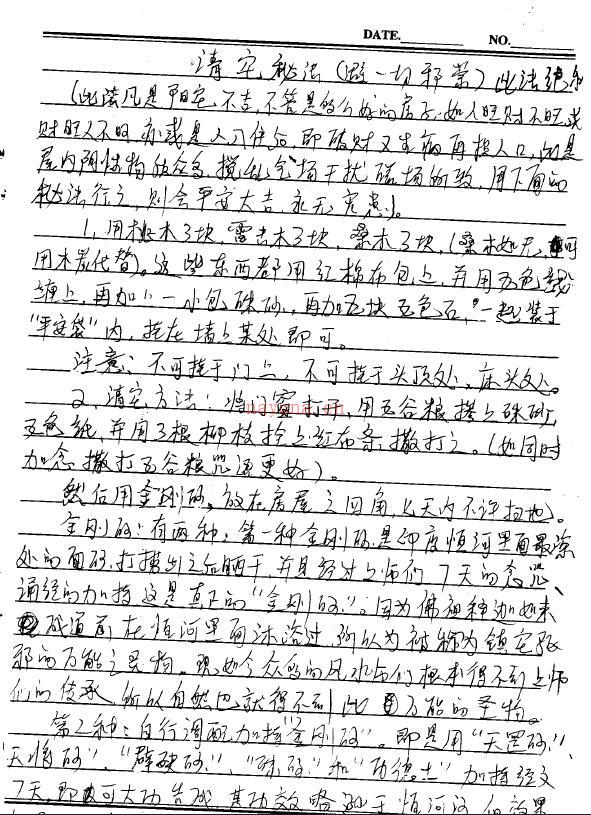 DATE. NO.
清宅秘法(避一切邪祟)此法绝
(此法凡是阳宅不吉,不管是多么好的房子,如人旺财不旺,或
财旺人不旺,亦或是人入住后,即破财又生病再损人口,均是
屋内阴性物质众多,搅乱气场干扰磁场所致,用下面的
秘法行之,则会平安大吉,永无灾患)。
1,用桃木3块,雷击木3块,桑木3块,(桑木如无,可
用木炭代替)。这些东西都用红棉布包上,并用五色线
缠上,再加上一小包硃砂,再加五块五色石,一起装于
"平安袋"内,挂在墙上某处即可。
注意:不可挂于门上,不可挂于头顶处,床头处。
2,清宅方法:将门窗打开,用五谷粮拌上硃砂,
五色纸,并用3根柳枝拴上红布条,撒打之。(如同时
加念撒打五谷粮咒语更好)。
然后用金刚砂,放在房屋之四角,七天内不许扫地。
金刚砂:有两种,第一种金刚砂是印度恒河里面最深
处的面砂,打捞出之后晒干,并且经过上师们7天的念咒、
诵经的加持这是真正的"金刚砂"。因为佛祖释迦如来
成道前在恒河里面沐浴过,所以为被称为镇宅驱
邪的万能之圣物。现如今众多的风水师们根本得不到上师
们的传承,所以自然也就得不到此万能的圣物。
第2种:自行调配加持"金刚砂"。即是用"天罡砂"、
"天将砂"、"辟砂"、"硃砂"和"功德土"加持经文
7天,即可大功告成,其功效略逊于恒河沙,但效果